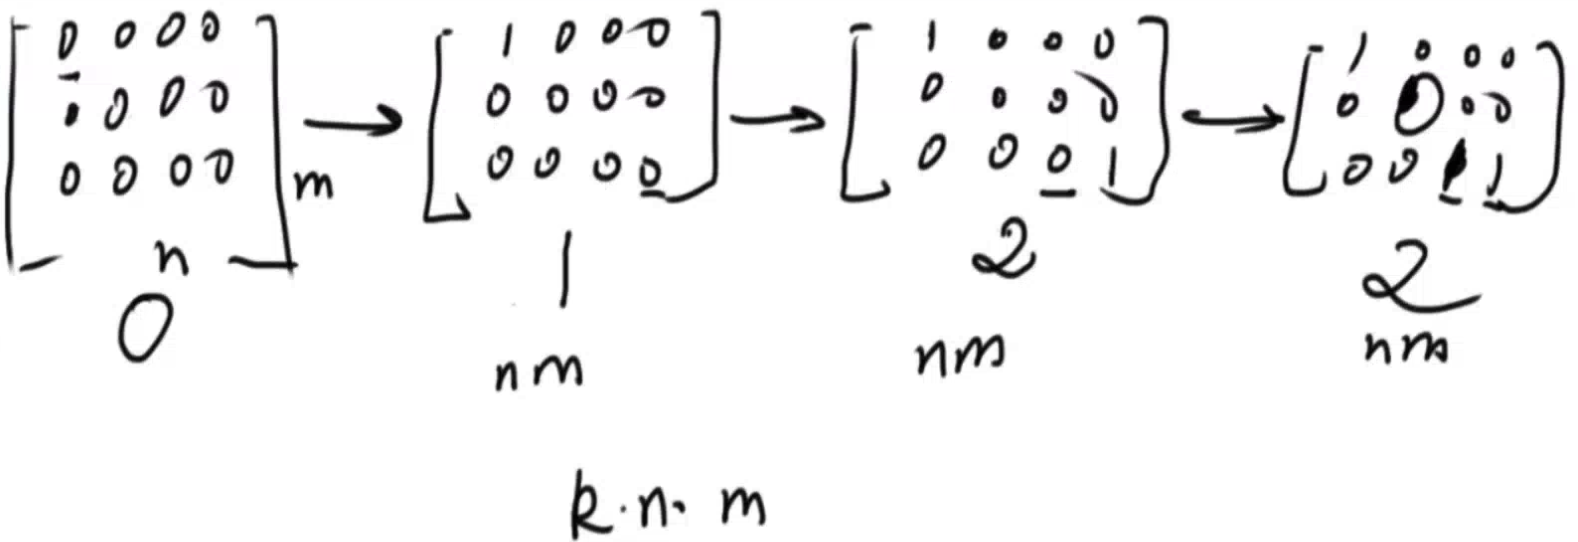 0 0 0 0 1 0 0 0 1 0 0 0 1 0 0 0
0 0 0 0 0 0 0 0 0 0 0 0 0 0 0
0 0 0 0 m 0 0 0 0 0 0 0 1 0 0 1
n
0 1 2 2
nm nm nm
k·n·m